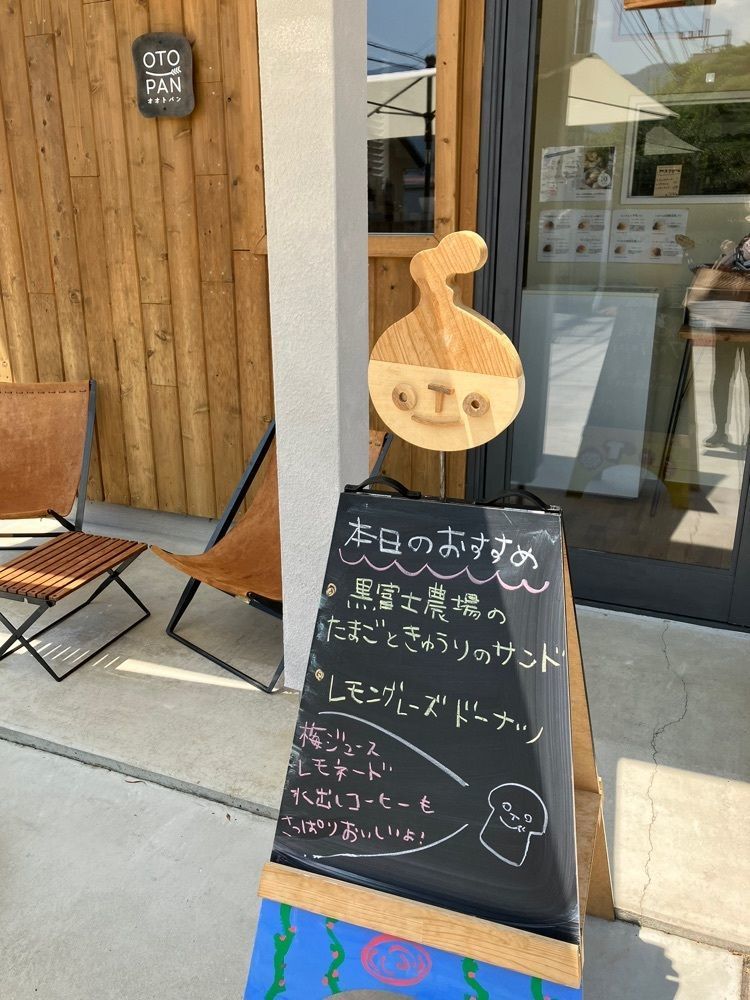 OTO
PAN
オオトパン
本日のおすすめ
黒富士農場の
たまごときゅうりのサンド
レモングレーズドーナツ
梅ジュース
レモネード
水出しコーヒーも
さっぱりおいしいよ!